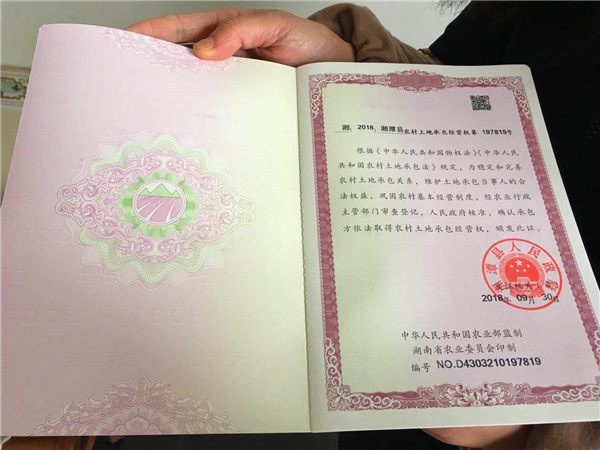 湘 2018 湘潭县农村土地承包经营权第 197819号
根据《中华人民共和国物权法》《中华人民
共和国农村土地承包法》规定，为稳定和完善
农村土地承包关系，维护土地承包当事人的合
法权益，巩固农村基本经营制度，经农业行政
主管部门审查登记，人民政府核准，确认承包
方依法取得农村土地承包经营权，颁发此证。
潭县人民政
2018年 09月 30日
中华人民共和国农业部监制
湖南省农业委员会印制
编号 NO.D4303210197819